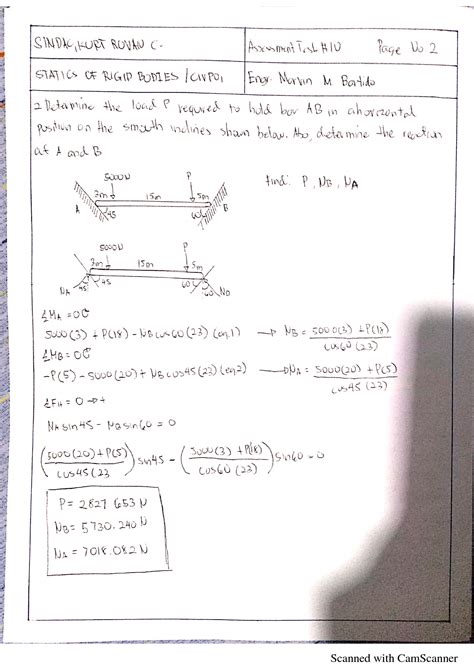 SINDAC, KURT ROVAN C.
Assessment Task #10 Page No 2
STATICS OF RIGID BODIES / CIVPO1
Engr. Marvin M. Bartido
2. Determine the load P required to hold bar AB in a horizontal
position on the smooth inclines shown below. Also, determine the reaction
at A and B
find: P, NB, NA
5000N P
3m 15m 5m
A 45 60 B
5000N P
3m 15m 5m
NA 45 60 60 NB
ΣMA = 0
5000(3) + P(18) - NB cos60 (23) (eq.1) → NB = 5000(3) + P(18)
cos60 (23)
ΣMB = 0
-P(5) - 5000(20) + NB cos45 (23) (eq2) → NA = 5000(20) + P(5)
cos45 (23)
ΣFH = 0 → +
NA sin45 - NB sin60 = 0
(5000(20) + P(5) / cos45 (23) sin45 - (5000(3) + P(18) / cos60 (23)) sin60 = 0
P = 2827.653 N
NB = 5730.240 N
NA = 7018.082 N
Scanned with CamScanner